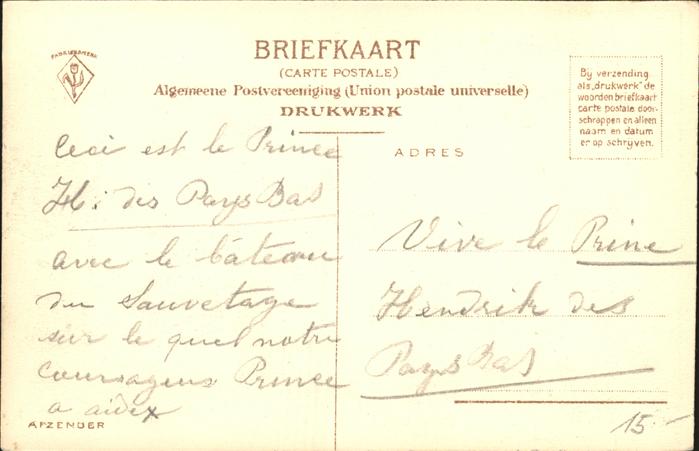 FABRIEKSMERK
BRIEFKAART
(CARTE POSTALE)
Algemeene Postvereeniging (Union postale universelle)
DRUKWERK
Bij verzending
als „drukwerk” de
woorden briefkaart
carte postale door-
schrappen en alleen
naam en datum
er op schryven.
Ceci est le Prince
H. des Pays Bas
avec le bâteau
du Sauvetage
sur le quel notre
courageus Prince
a aidex
AFZENDER
ADRES
Vive le Prine
Hendrik des
Pays Bas
15-